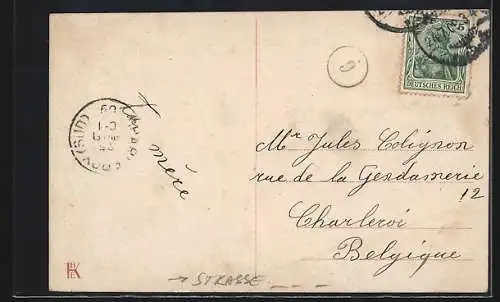 DEUTSCHES REICH
6
(SUD)
mère
Mr Jules Colignon
rue de la Gendarmerie
12
Charleroi
Belgique
→ STRASSE _ _ _